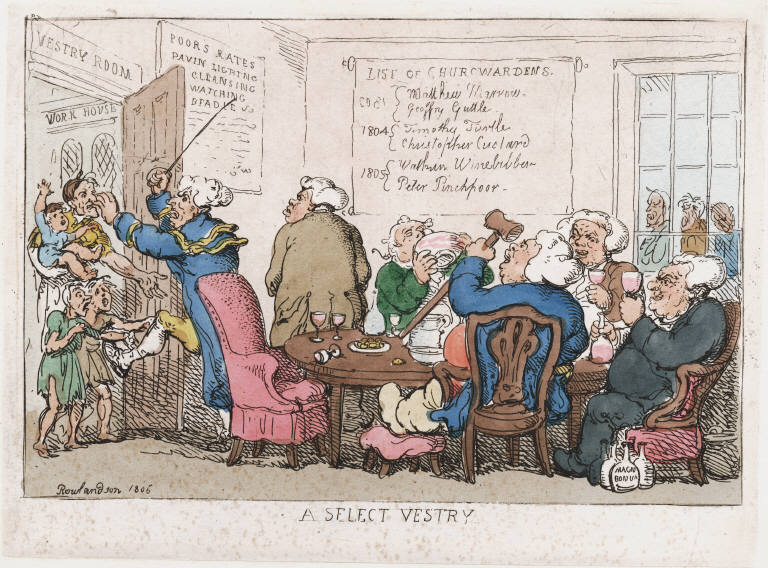 VESTRY ROOM
WORK HOUSE
POORS RATES
PAVIN LIGTING
CLEANSING
WATCHING
BEADLES
LIST OF CHURCWARDENS.
Matthew Marrow.
Geoffry Guttle
1804 Timothy Turtle
Christopher Custard
1805 Walkin Winebibber
Peter Pinchpoor.
MAGN
BONUM
Rowlandson 1806
A SELECT VESTRY